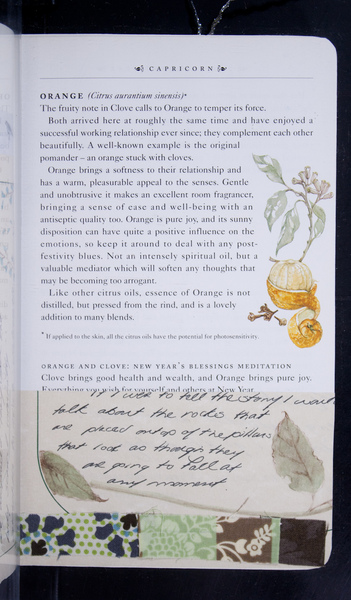 CAPRICORN
ORANGE (Citrus aurantium sinensis)*
The fruity note in Clove calls to Orange to temper its force.
Both arrived here at roughly the same time and have enjoyed a
successful working relationship ever since; they complement each other
beautifully. A well-known example is the original
pomander – an orange stuck with cloves.
Orange brings a softness to their relationship and
has a warm, pleasurable appeal to the senses. Gentle
and unobtrusive it makes an excellent room fragrancer,
bringing a sense of ease and well-being with an
antiseptic quality too. Orange is pure joy, and its sunny
disposition can have quite a positive influence on the
emotions, so keep it around to deal with any post-
festivity blues. Not an intensely spiritual oil, but a
valuable mediator which will soften any thoughts that
may be becoming too arrogant.
Like other citrus oils, essence of Orange is not
distilled, but pressed from the rind, and is a lovely
addition to many blends.
* If applied to the skin, all the citrus oils have the potential for photosensitivity.
ORANGE AND CLOVE: NEW YEAR'S BLESSINGS MEDITATION
Clove brings good health and wealth, and Orange brings pure joy.
Everything you wish for yourself and others at New Year
were to tell the story I would
talk about the rocks that
are placed on top of the pillars
that look as though they
are going to fall at
any moment.